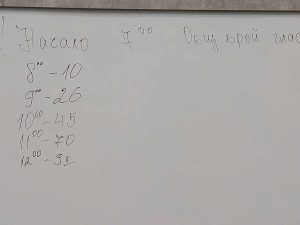 Начало 7⁰⁰ Общ брой глас
8⁰⁰ - 10
9⁰⁰ - 26
10⁰⁰ - 45
11⁰⁰ - 70
12⁰⁰ - 91